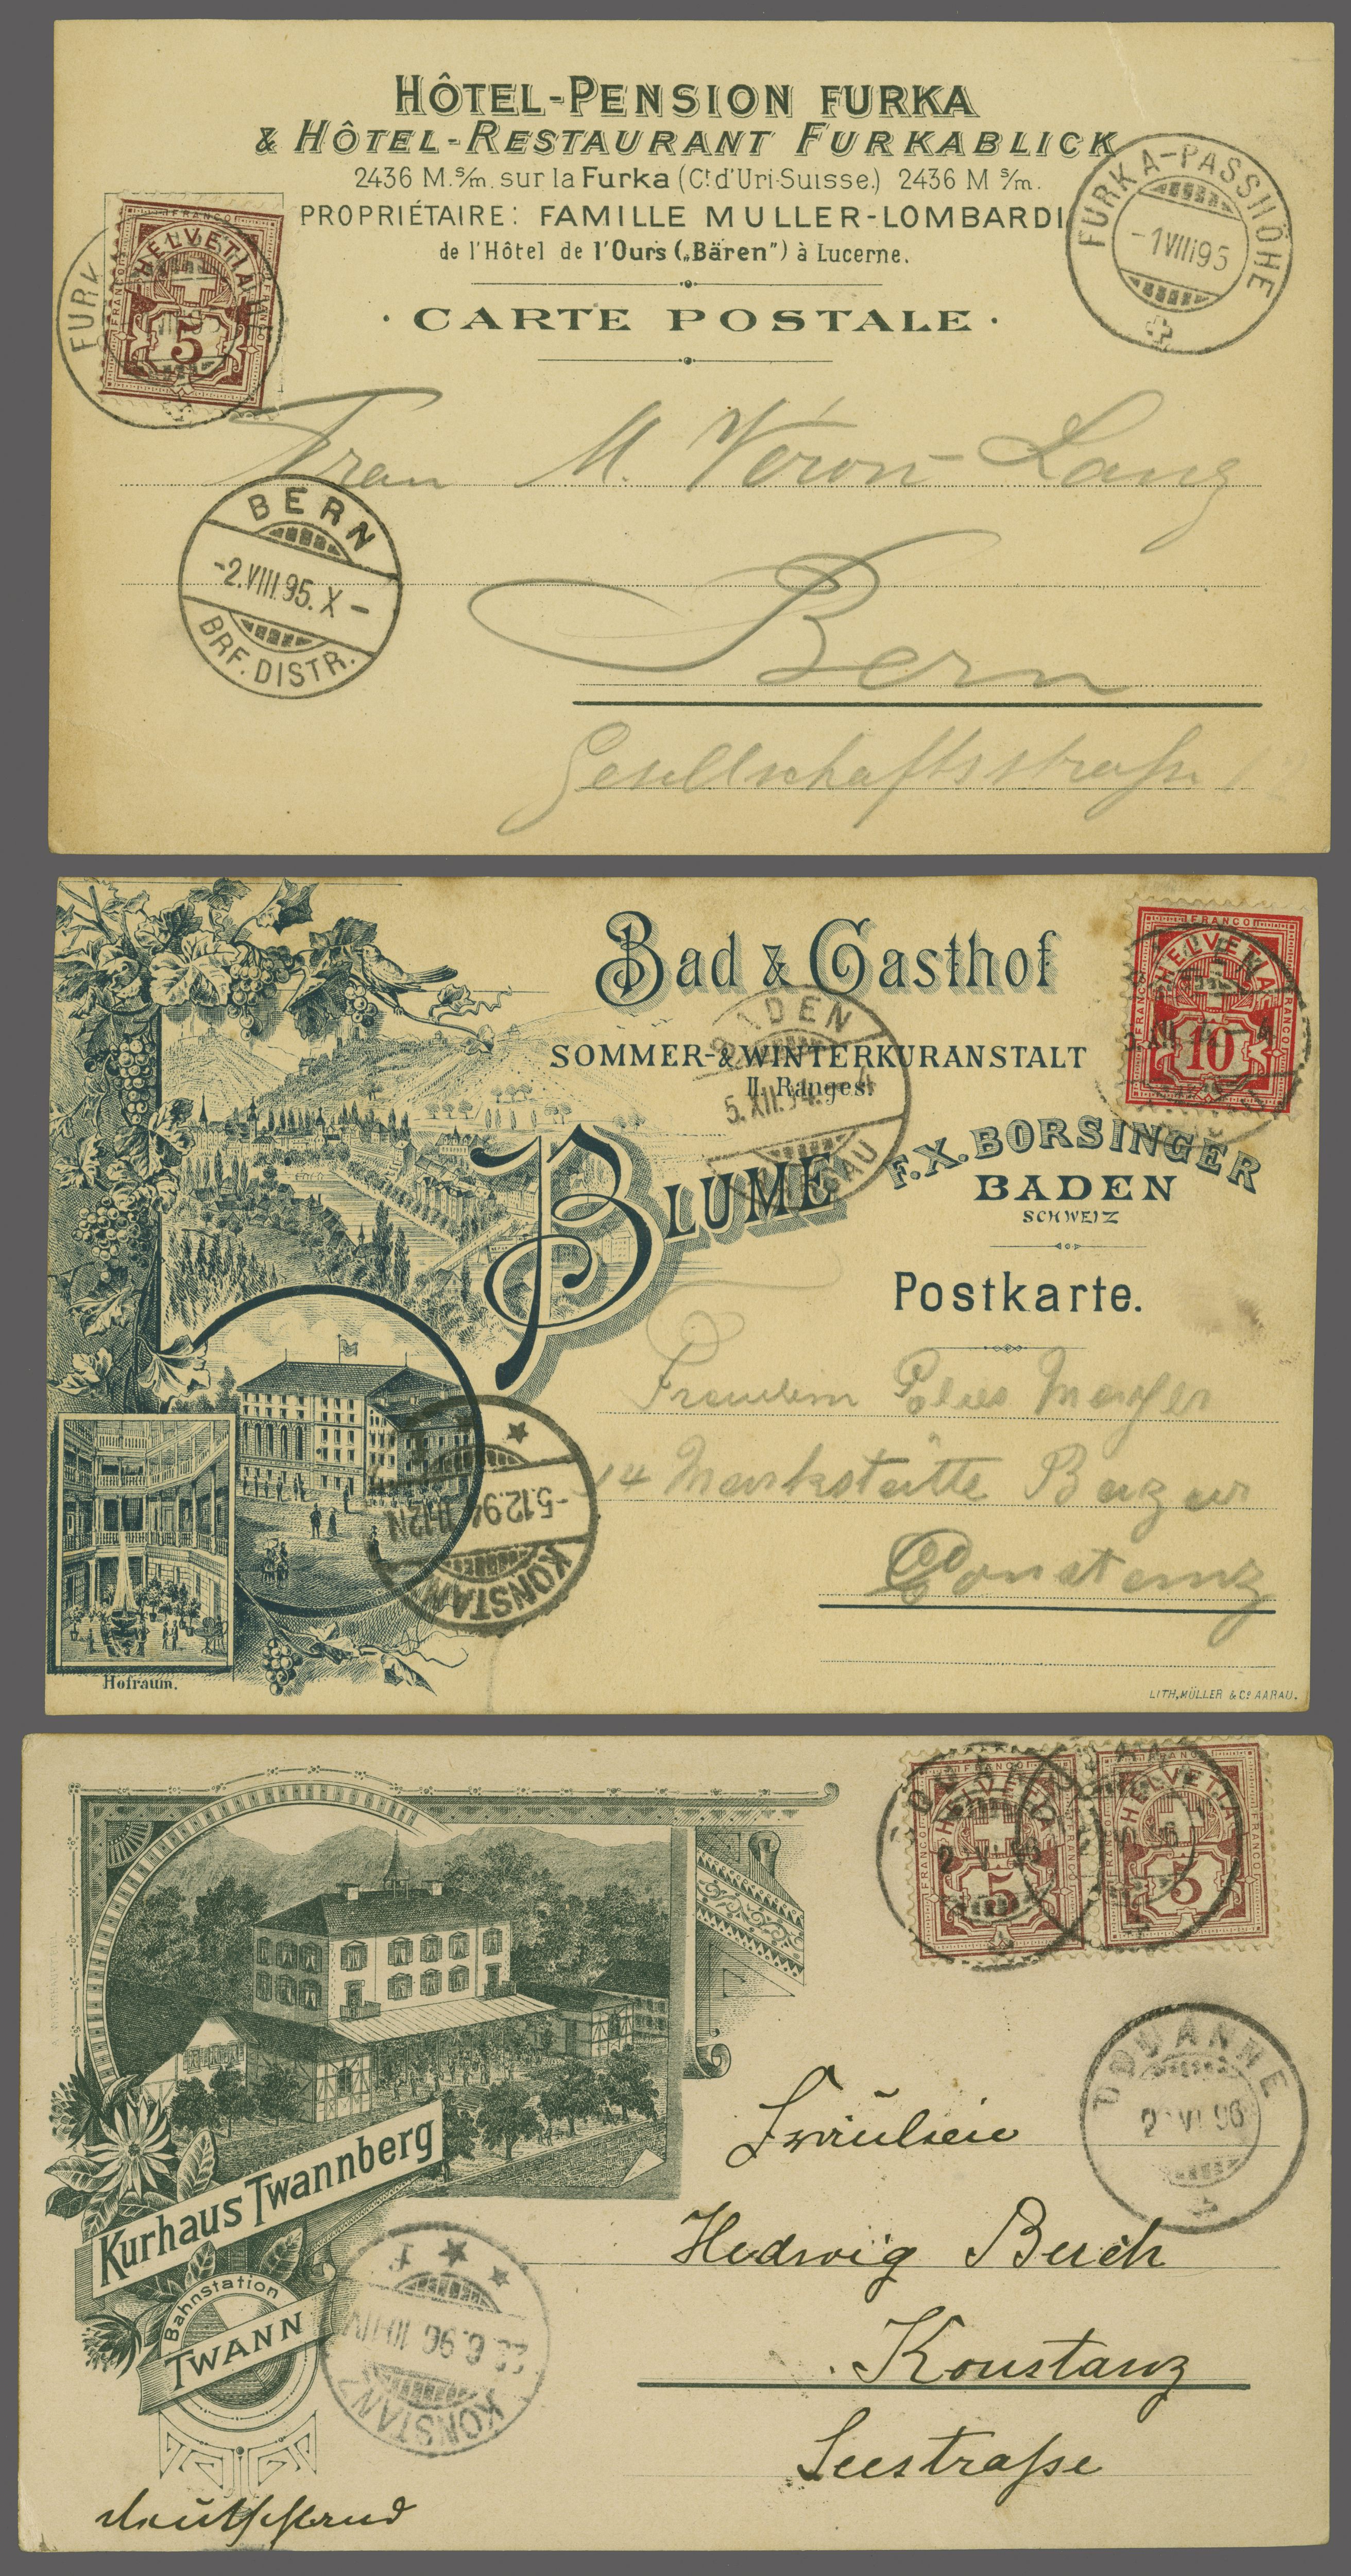 HÔTEL-PENSION FURKA
& HÔTEL-RESTAURANT FURKABLICK
2436 M.s/m. sur la Furka (Ct. d'Uri-Suisse.) 2436 M s/m.
PROPRIÉTAIRE: FAMILLE MULLER-LOMBARDI
de l'Hôtel de l'Ours („Bären") à Lucerne.
· CARTE POSTALE ·
FURKA-PASSHÖHE
-1 VIII 95
FURK
FRANCO
HELVETIA
FRANCO
5
Frau M. Véron-Lang
BERN
-2.VIII.95.X-
BRF. DISTR.
Bern
Gesellschaftsstraße
Bad & Gasthof
SOMMER-& WINTERKURANSTALT
II. Ranges.
BLUME
F.X. BORSINGER
BADEN
SCHWEIZ
Postkarte.
FRANCO
HELVETIA
FRANCO
FRANCO
10
BADEN
5.XII.94.
GAU
Fräulein Mayer
14 Marktstätte Bazar
Constanz
-5.12.94 11-12N
KONSTANZ
Hofraum.
LITH. MÜLLER & Co. AARAU.
FRANCO
HELVETIA
FRANCO
FRANCO
5
2 VI 96
FRANCO
HELVETIA
FRANCO
5
DOUANNE
2 VI 96
Kurhaus Twannberg
Bahnstation
TWANN
Fräulein
Hedwig Buch
Konstanz
Seestraße
6.96 10-11V
KONSTANZ
Deutschland